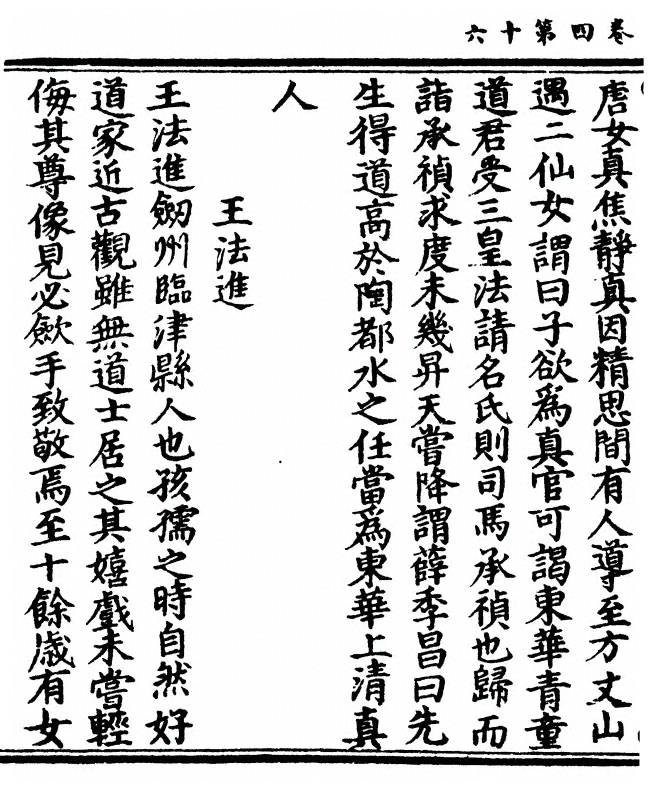 卷四第十六
唐女真焦靜真因精思間有人導至方丈山
遇二仙女謂曰子欲爲真官可謁東華青童
道君受三皇法請名氏則司馬承禎也歸而
詣承禎求度未幾昇天嘗降謂薛季昌曰先
生得道高於陶都水之任當爲東華上清真
人
王法進
王法進劒州臨津縣人也孩孺之時自然好
道家近古觀雖無道士居之其嬉戲未嘗輕
侮其尊像見必斂手致敬焉至十餘歲有女